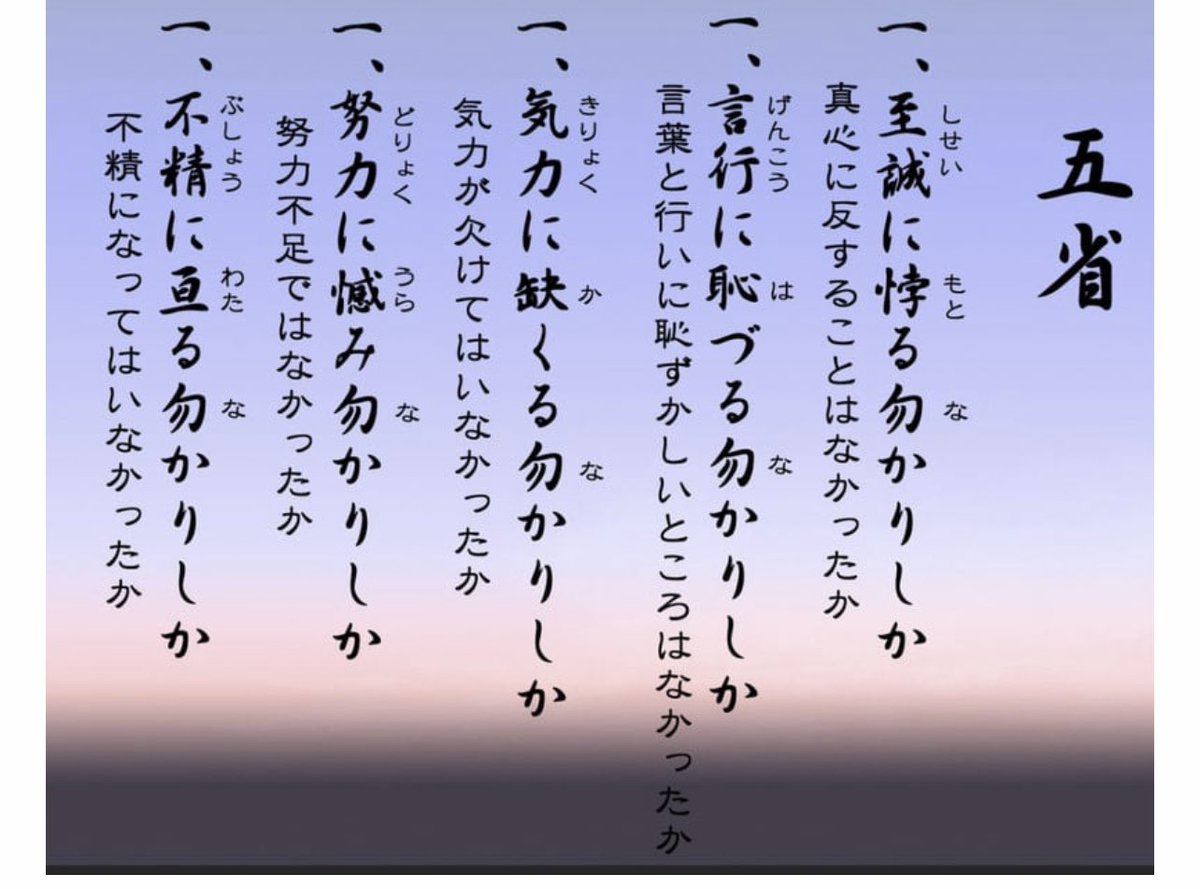 五省
一、至誠に悖る勿かりしか
しせい もと な
真心に反することはなかったか
一、言行に恥づる勿かりしか
げんこう は な
言葉と行いに恥ずかしいところはなかったか
一、気力に缺くる勿かりしか
きりょく か な
気力が欠けてはいなかったか
一、努力に憾み勿かりしか
どりょく うら な
努力不足ではなかったか
一、不精に亘る勿かりしか
ぶしょう わた な
不精になってはいなかったか